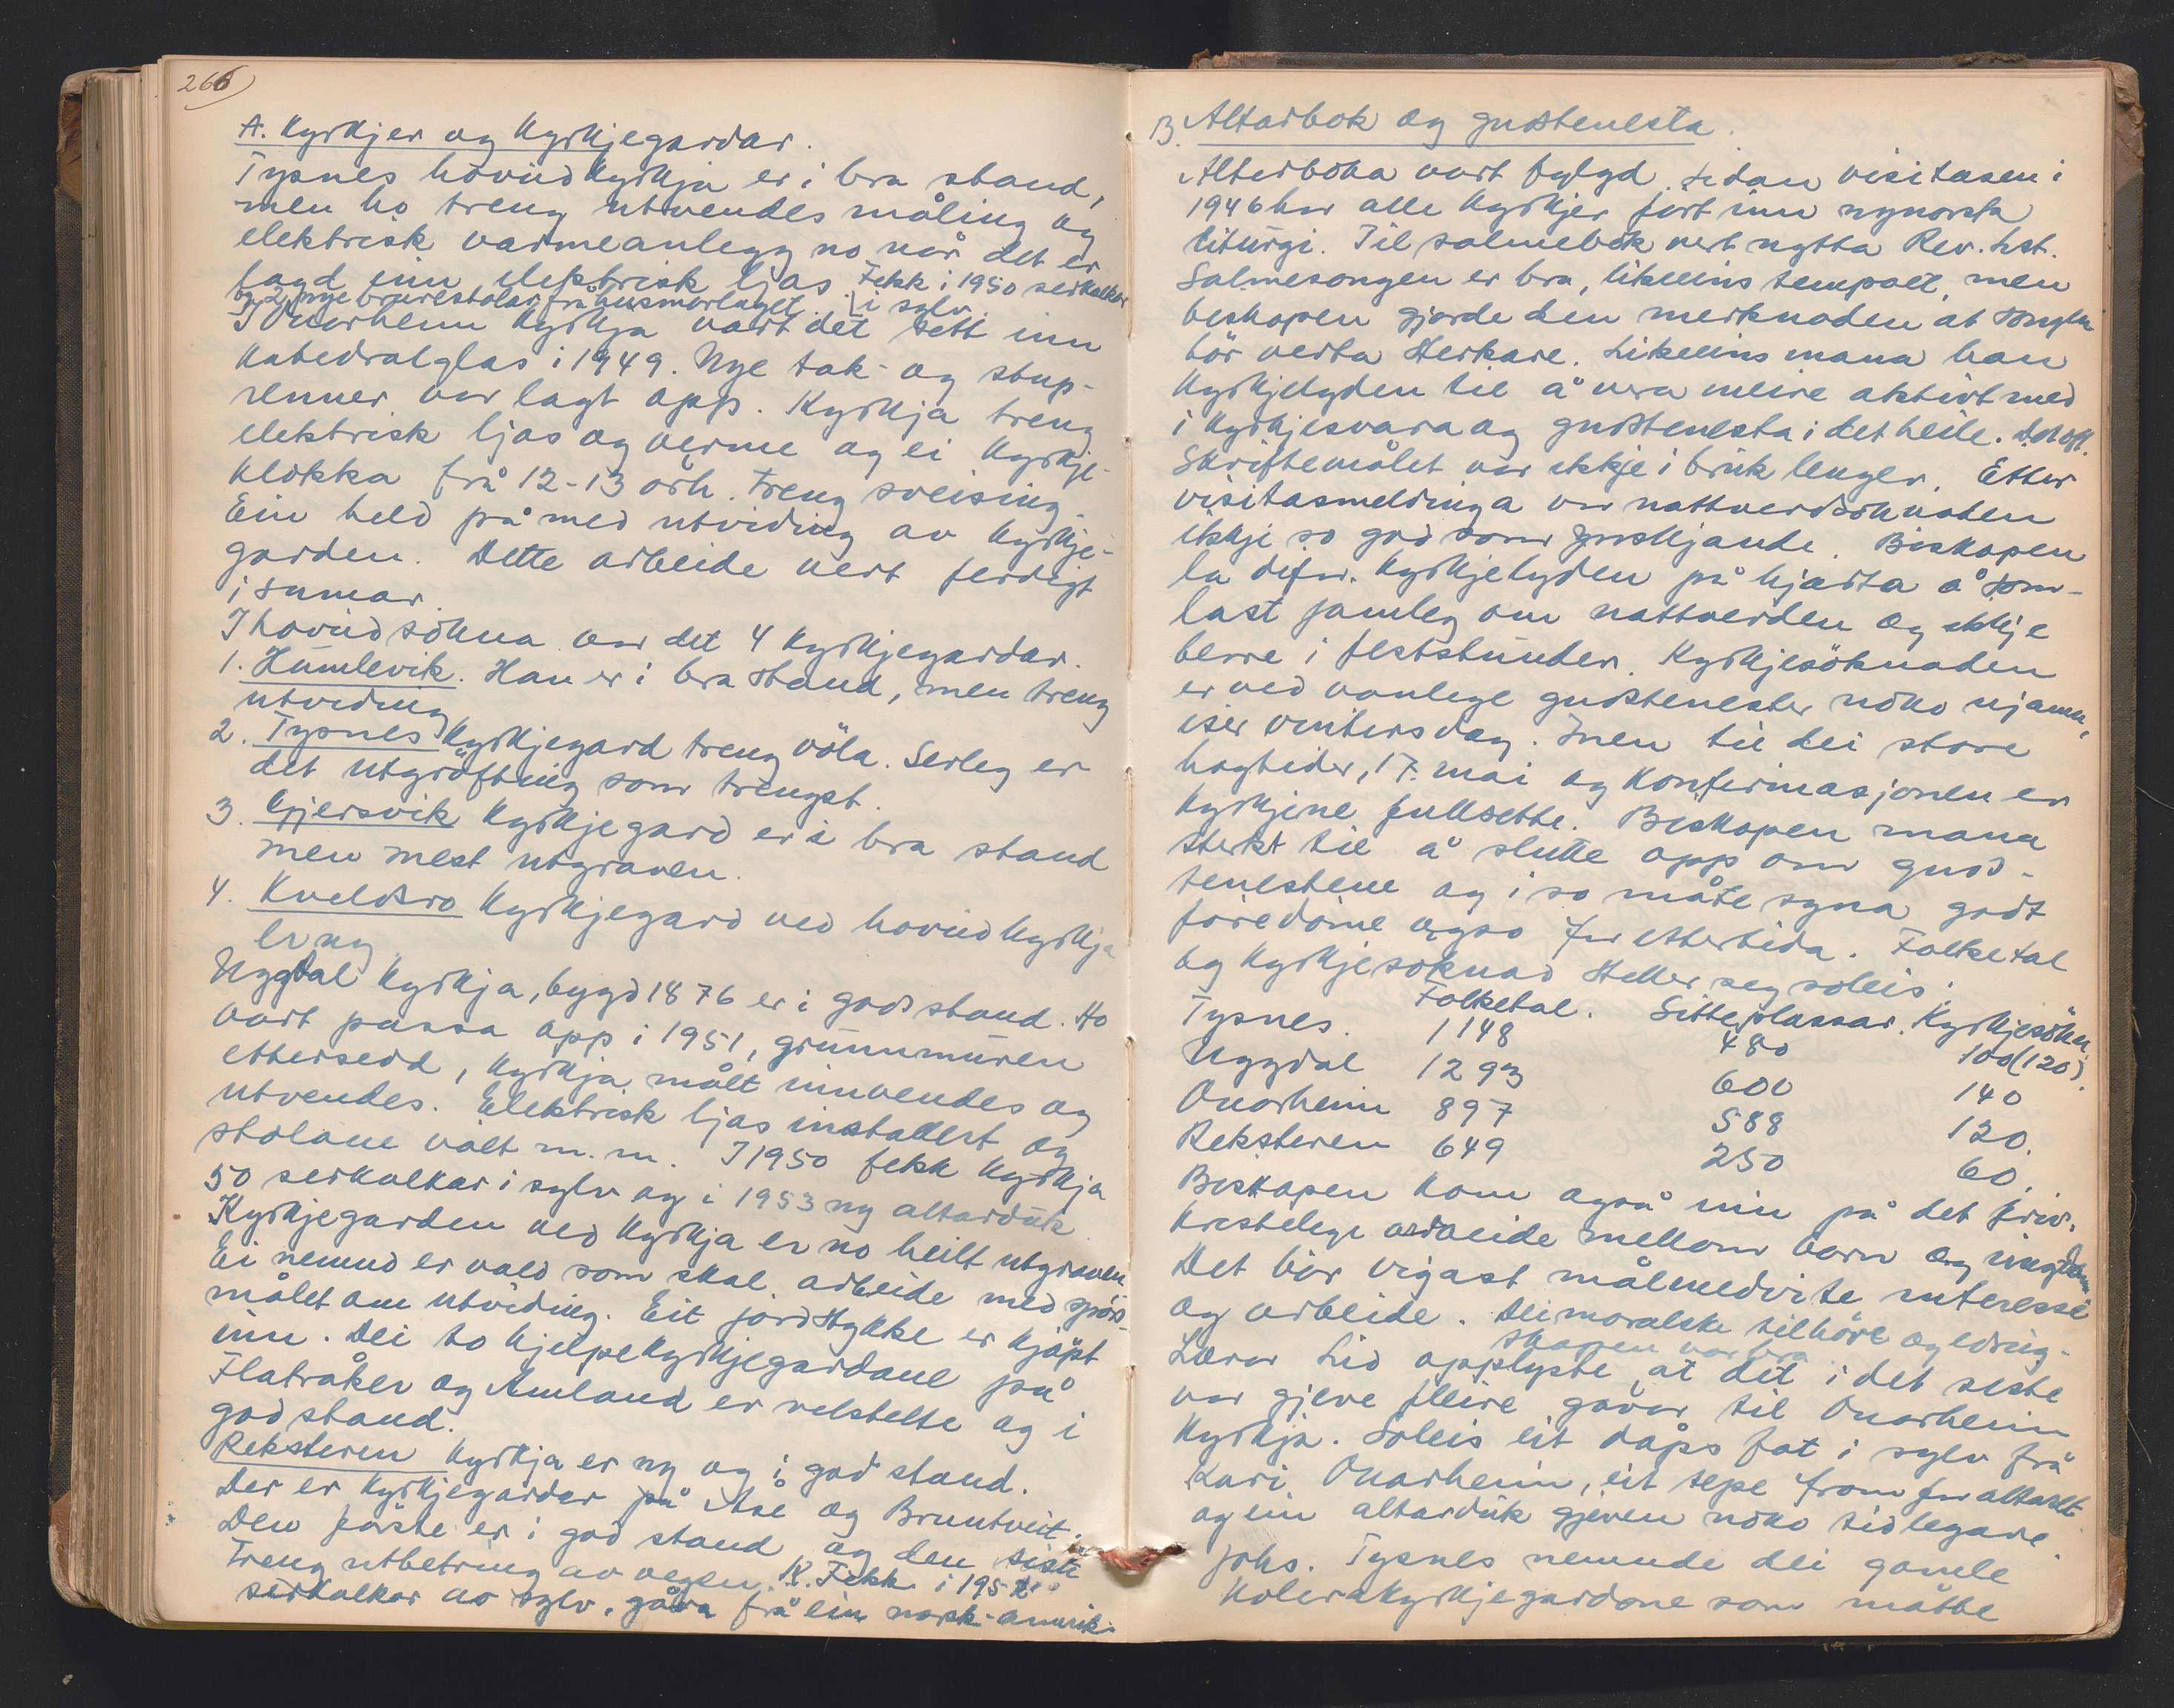 266
A. Kyrkjer og Kyrkjegardar.
Tysnes hovüdkyrkja er i bra stand,
men ho treng utvendes måling og
elektrisk varmeanlegg no når det er
lagd inn elektrisk ljos. Fekk i 1950 serkalkar
og 2 nye brurestolar frå husmorlaget. i sylv.
I Onarheim Kyrkja vart det sett inn
Katedralglas i 1949. Nye tak- og stup-
renner var lagt opp. Kyrkja treng
elektrisk ljos og verme og ei Kyrkje-
klokka frå 12-13 årh. treng sveising.
Ein held på med utviding av Kyrkje-
garden. Dette arbeide vert ferdigt
i sumar.
I hovüdsokna var det 4 Kyrkjegardar.
1. Hümlevik. Han er i bra stand, men treng
utviding
2. Tysnes Kyrkjegard treng völa. Serleg er
det utgröfting som trengst.
3. Gjersvik Kyrkjegard er i bra stand
men mest utgraven.
4. Kveldsro Kyrkjegard ved hovüdkyrkja
er ny.
Uggdal Kyrkja, bygd 1876 er i god stand. Ho
vart pussa opp i 1951, grünnmüren
ettersedd, Kyrkja målt innvendes og
utvendes. Elektrisk ljos installert og
stolane vålt m.m. I 1950 fekk Kyrkja
50 serkalkar i sylv og i 1953 ny altardük
Kyrkjegarden ved Kyrkja er no heilt utgraven
Ei nemnd er vald som skal arbeide med spörs-
målet om utviding. Eit jordstykke er kjöpt
inn. Dei to hjelpekyrkjegardane på
Flatråker og Amland er velstelte og i
god stand.
Reksteren Kyrkja er ny og i god stand.
Der er Kyrkjegardar på Åse og Bruntveit.
Den förste er i god stand og den siste
treng utbetring av vegen. K. Fekk i 195
serkalkar av sylv, gåva frå ein norsk-amerik.
B. Altarbok og gudstenesta.
Alterboka vart fylgd. Sidan visitasen i
1946 har alle Kyrkjer fört inn nynorsk
liturgi. Til salmebok vert nytta Rev. Lst.
Salmesongen er bra, likeeins tempoet, men
biskopen gjorde den merknaden at songen
bör verta sterkare. Likeeins mana han
Kyrkjelyden til å vera meire aktivt med
i Kyrkjesvara og gudstenesta i det heile.
Skriftemålet var ikkje i brük lenger. Etter
visitasmeldinga var nattverdsöknaden
ikkje so god som ynskjande. Biskopen
la difor Kyrkjelyden på hjarta å sam-
last jamleg om nattverden og ikkje
berre i feststünder. Kyrkjesöknaden
er ved vanlege gudstenester noko ujamn,
iser vintersdag. Men til dei store
högtider, 17. mai og Konfirmasjonen er
Kyrkjene fullsette. Biskopen mana
sterkt til å slutte opp om guds-
tenestene og i so måte syna godt
föredöme ogso for ettertida. Folketal
og Kyrkjesöknad steller seg soleis:
Folketal. Sitteplassar. Kyrkjesökn.
Tysnes. 1148 480 100(120).
Uggdal 1293 600 140
Onarheim 897 588 120.
Reksteren 649 250 60.
Biskopen kom også inn på det friv.
kristelege arbeide mellom born og ungdom
Det bör vigast målmedvite interesse
og arbeide. Dei moralske tilhöve og edrug-
skapen var bra.
Lærar Lid opplyste at det i det siste
var gjeve fleire gåvor til Onarheim
Kyrkja. Soleis eit dåps fat i sylv frå
Kari Onarheim, eit tepe fram for altaret
og ein altardük gjeven noko tidlegare.
Johs. Tysnes nemnde dei gamle
Kolerakyrkjegardane som måtte